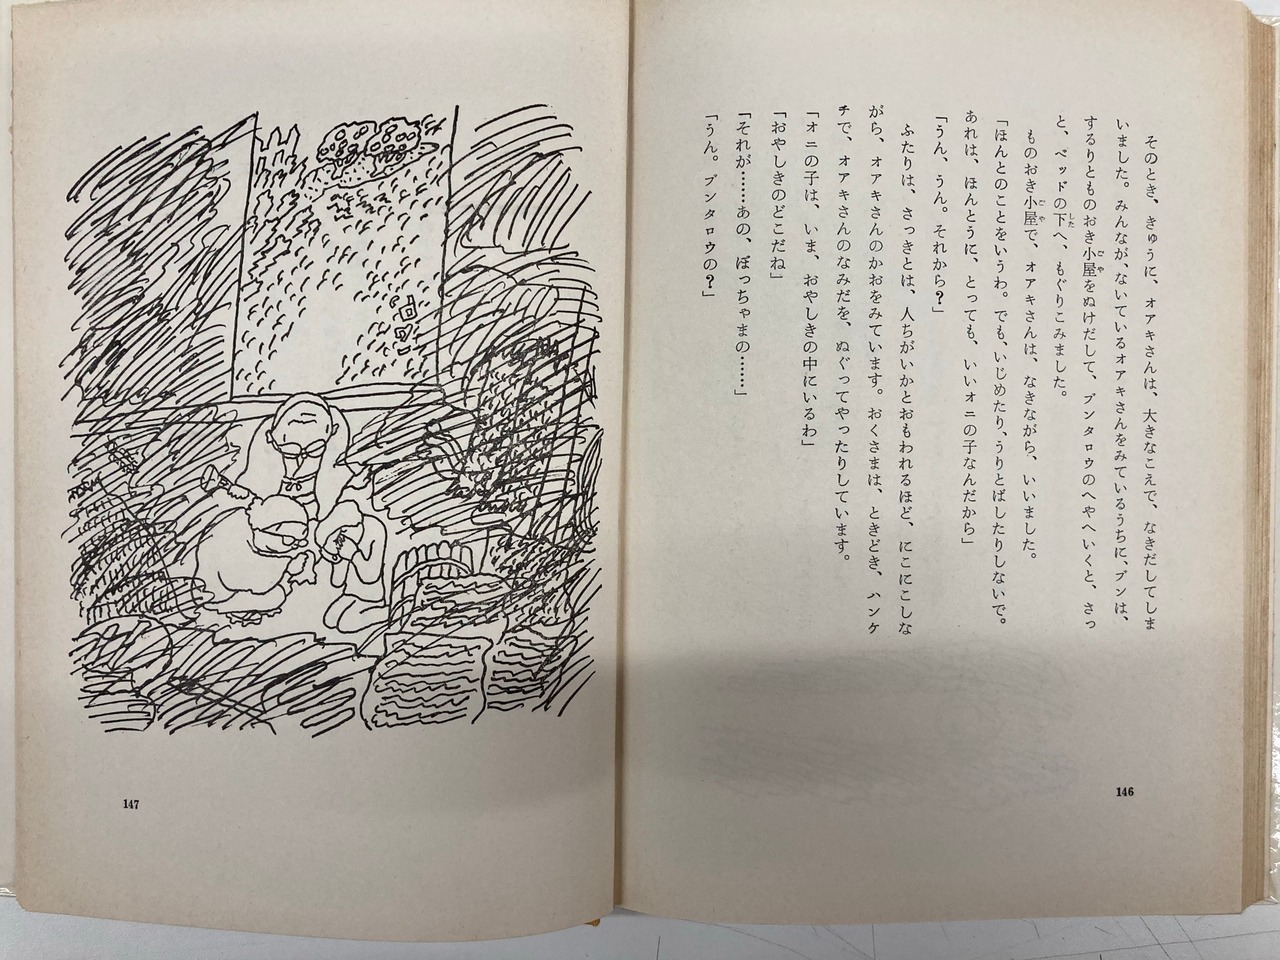 そのとき、きゅうに、オアキさんは、大きなこえで、なきだしてしま
いました。みんなが、ないているオアキさんをみているうちに、ブンは、
するりとものおき小屋をぬけだして、ブンタロウのへやへいくと、さっ
と、ベッドの下へ、もぐりこみました。
ものおき小屋で、オアキさんは、なきながら、いいました。
「ほんとのことをいうわ。でも、いじめたり、うりとばしたりしないで。
あれは、ほんとうに、とっても、いいオニの子なんだから」
「うん、うん。それから？」
ふたりは、さっきとは、人ちがいかとおもわれるほど、にこにこしな
がら、オアキさんのかおをみています。おくさまは、ときどき、ハンケ
チで、オアキさんのなみだを、ぬぐってやったりしています。
「オニの子は、いま、おやしきの中にいるわ」
「おやしきのどこだね」
「それが……あの、ぼっちゃまの……」
「うん。ブンタロウの？」
146
147